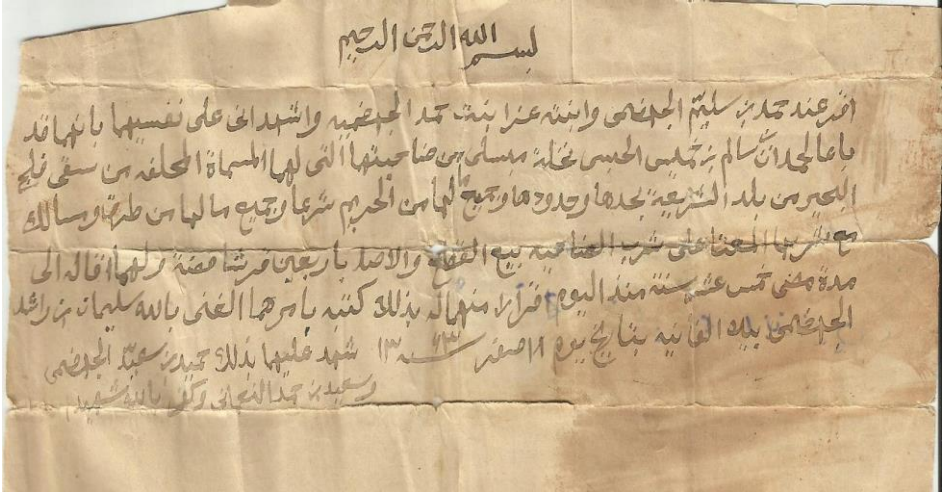 بسم الله الرحمن الرحيم
اقر عند حمد بن سليم الجهضمي وابنته عزا بنت حمد الجهضمية واشهداني على نفسيهما بانهما قد
باعا لحمدان سالم بن خميس الحبسي نخلة مبسلي من ضاحيتها التي لهما المسماة المحلفه من سقي فلج
من بلد الشريعة بحدها وحدودها وجميع لها من الحريم شرعا وجميع ما لها من طرق ومسالك
مع شربها على شرب الضاحيه بيع القطع والاصل بأربعين قرشا فضة ولهما اقاله الى
مدة مضي خمس عشر سنة منذ اليوم اقرارا منهما له بذلك كتبه بأمرهما الغني بالله سليمان بن راشد
الجهضمي بيده الفانيه بتاريخ يوم ١٨ صفر سنة شهد عليهما بذلك حميد بن سعيد الجهضمي
وسعيد بن حمد وكفى بالله شهيدا